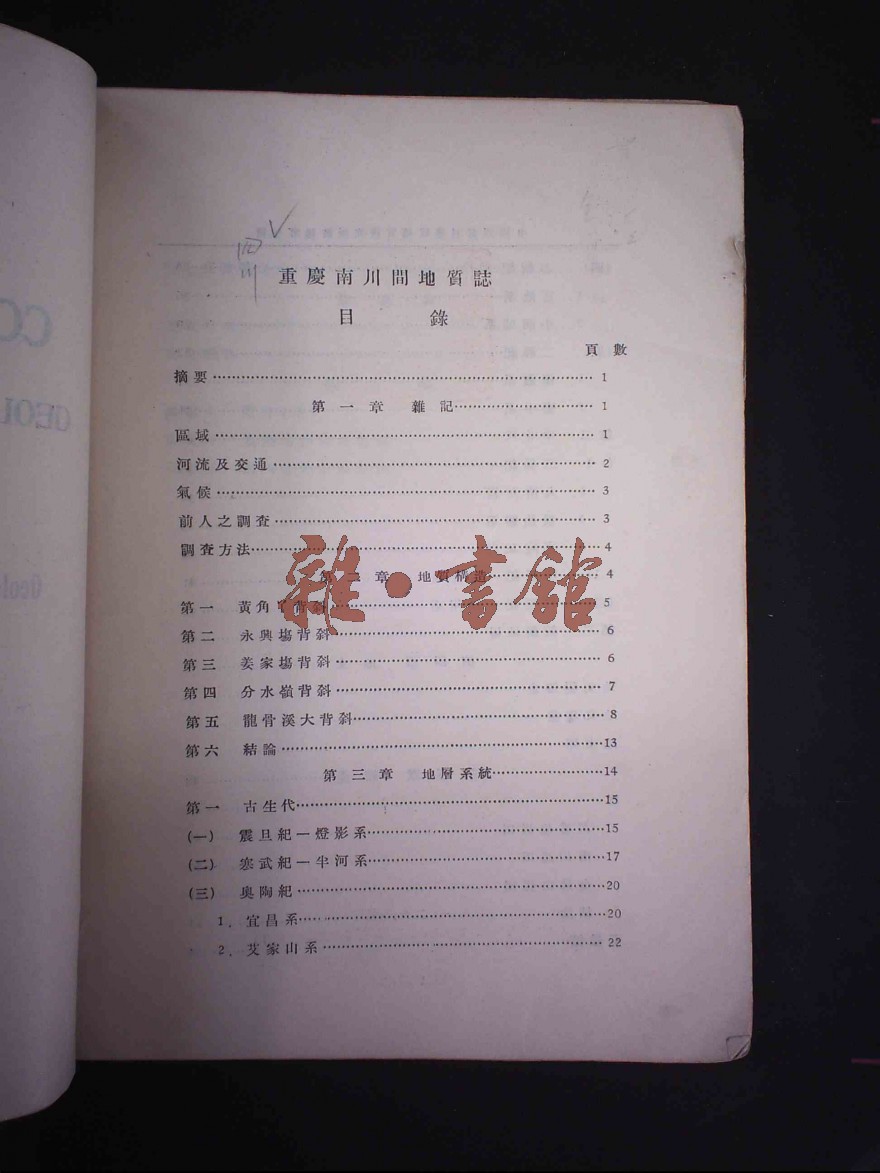 四川
重慶南川間地質誌
目 錄
頁 數
摘要 1
第一章 雜記 1
區域 1
河流及交通 2
氣候 3
前人之調查 3
調查方法 4
第二章 地質構造 4
第一 黃角 背斜 5
第二 永興塲背斜 6
第三 姜家塲背斜 6
第四 分水嶺背斜 7
第五 龍骨溪大背斜 8
第六 結論 13
第三章 地層系統 14
第一 古生代 15
(一) 震旦紀—燈影系 15
(二) 寒武紀—半河系 17
(三) 奧陶紀 20
1. 宜昌系 20
2. 艾家山系 22
雜·書館
CO
GEOL
Geolo